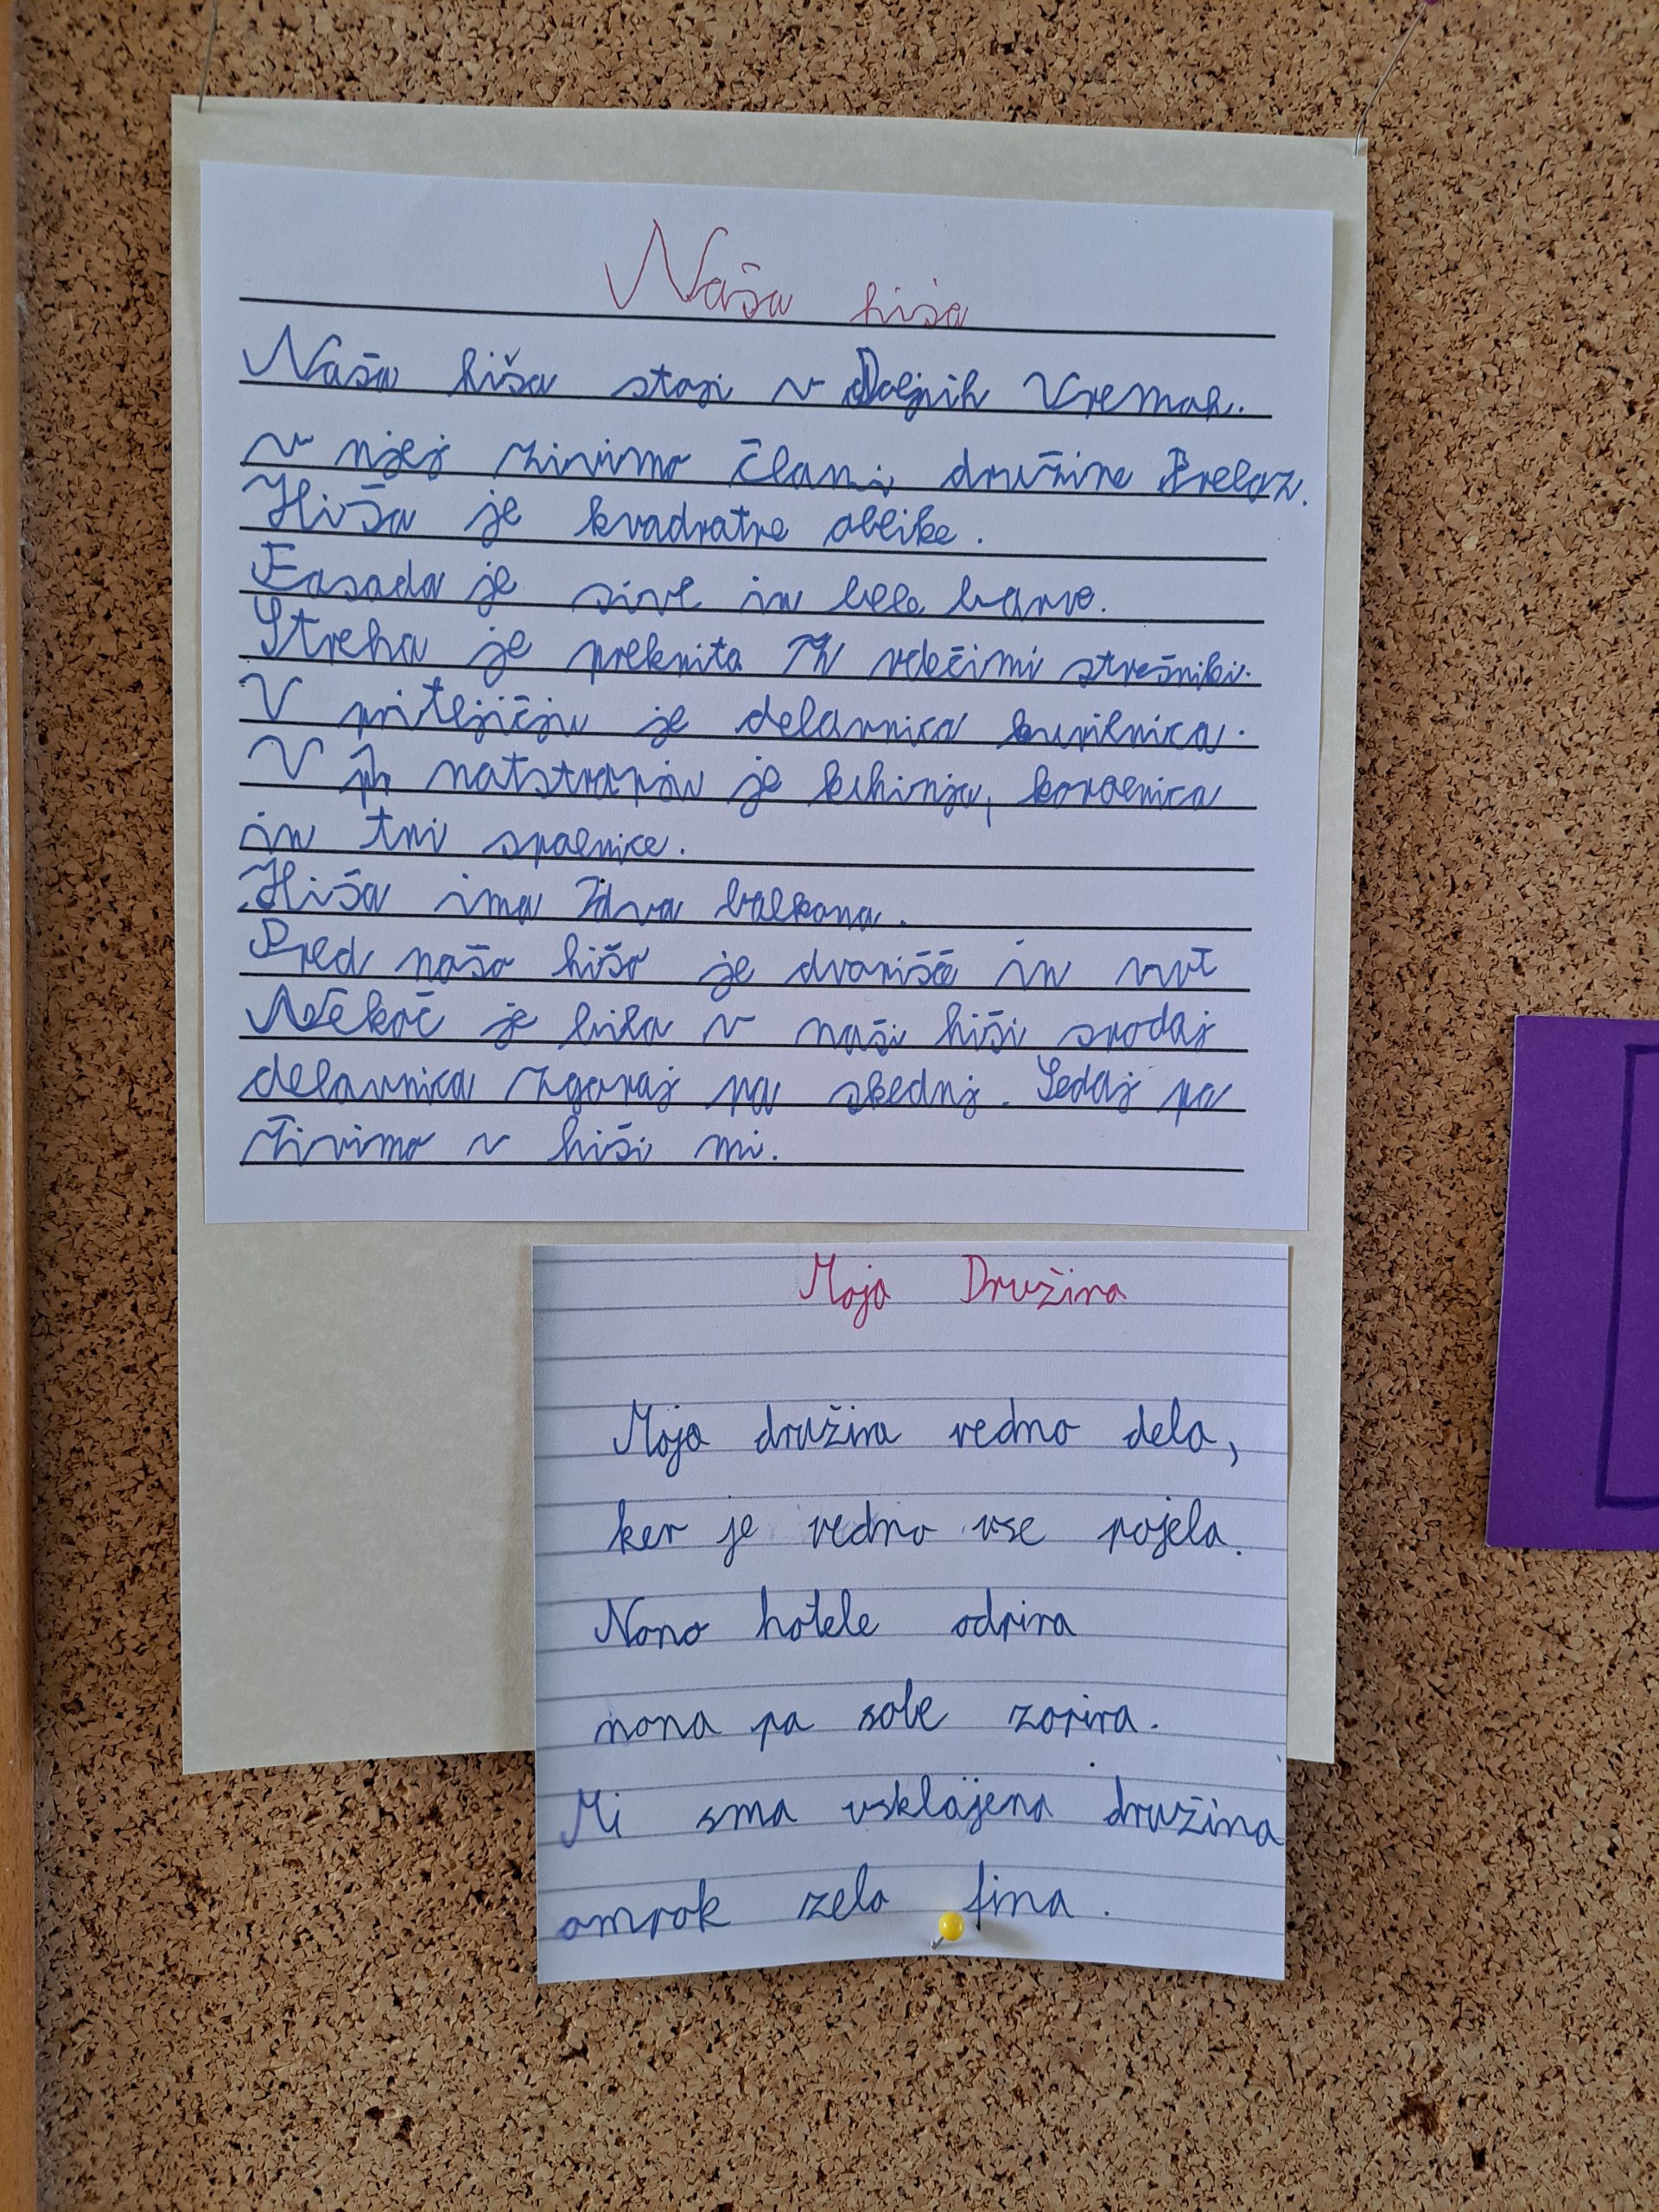 Naša hiša
Naša hiša stoji v Dolnjih Vremah.
v njej živimo člani družine Prelaz.
Hiša je kvadratne oblike.
Fasada je sive in bele barve.
Streha je prekrita z rdečimi strešniki.
V pritličju je delavnica kurilnica.
V natstropju je kuhinja, kopalnica
in tri spalnice.
Hiša ima dva balkona.
Pred našo hišo je dvorišče in vrt
Nekoč je bila v naši hiši spodaj
delavnica zgoraj pa skednj. Sedaj pa
živimo v hiši mi.
Moja Družina
Moja družina vedno dela,
ker je vedno vse pojela.
Nono hotele odpira
nona pa sobe zapira.
Mi smo usklajena družina
ampak zelo fina.